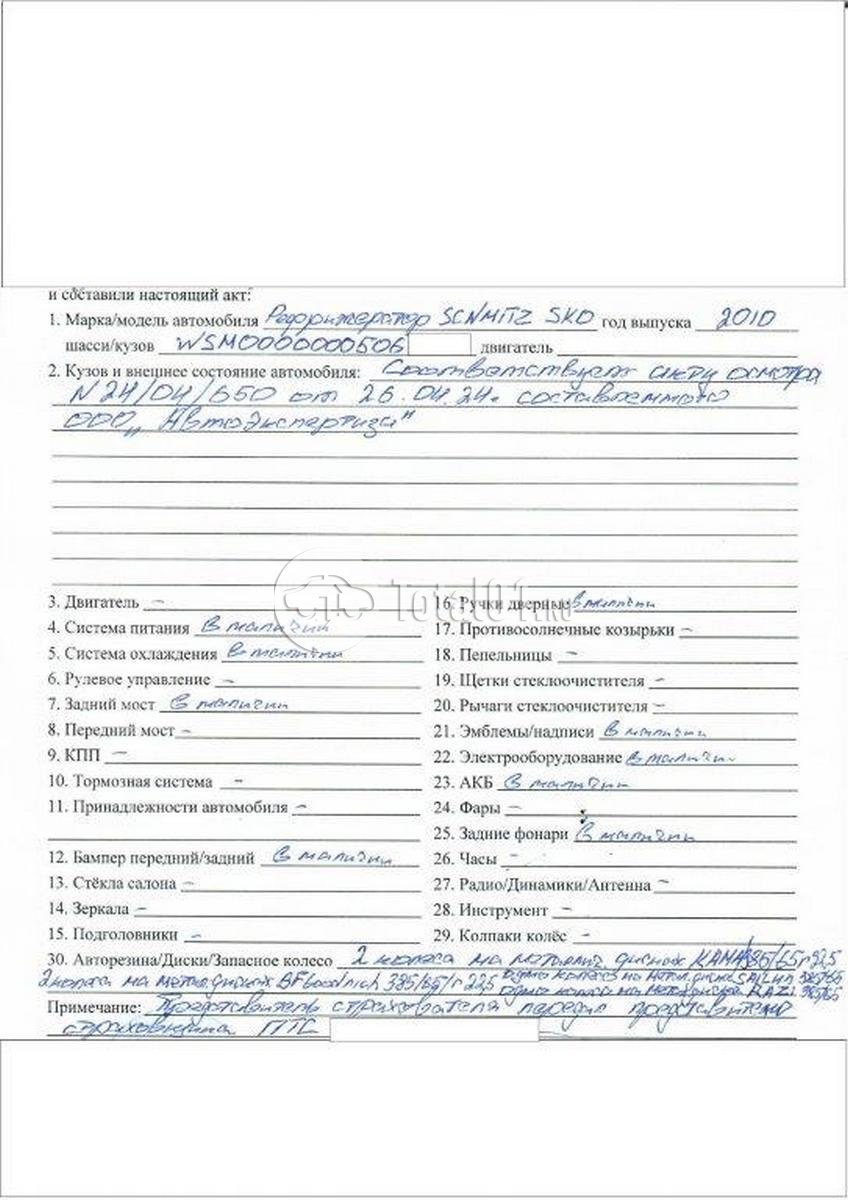 и составили настоящий акт:
1. Марка/модель автомобиля Рефрижератор SCNMITZ SKO год выпуска 2010
шасси/кузов WSM0000000506 двигатель
2. Кузов и внешнее состояние автомобиля: Соответствует акту осмотра
N 24/04/650 от 26.04.24г составленного
ООО „Автоэкспертиза"
Total01.ru
3. Двигатель –
4. Система питания в наличии
5. Система охлаждения в наличии
6. Рулевое управление –
7. Задний мост в наличии
8. Передний мост –
9. КПП –
10. Тормозная система –
11. Принадлежности автомобиля –
12. Бампер передний/задний в наличии
13. Стёкла салона –
14. Зеркала –
15. Подголовники –
16. Ручки дверные в наличии
17. Противосолнечные козырьки –
18. Пепельницы –
19. Щетки стеклоочистителя –
20. Рычаги стеклоочистителя –
21. Эмблемы/надписи в наличии
22. Электрооборудование в наличии
23. АКБ в наличии
24. Фары –
25. Задние фонари в наличии
26. Часы –
27. Радио/Динамики/Антенна –
28. Инструмент –
29. Колпаки колёс –
30. Авторезина/Диски/Запасное колесо 2 колеса на металлич. дисках КАМА 385/65 r 22,5
2 колеса на метал. дисках 385/65/r 22,5 одно колесо на метал. диске SAILUN 385/65
одно колесо на метал. диске 385/65
Примечание: Представитель страхователя передал представителю
страховщика ПТС